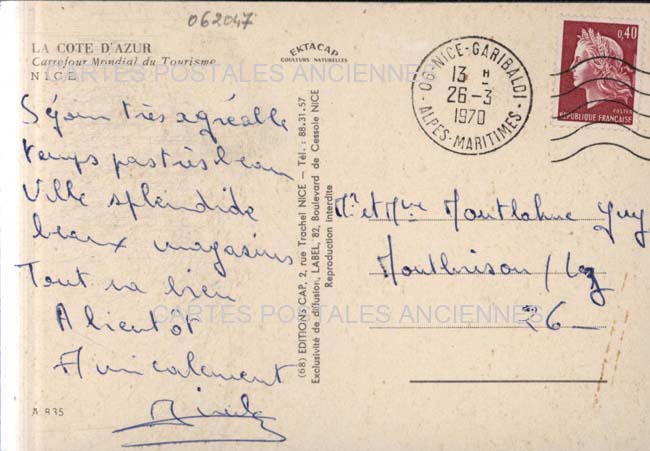 062047
LA COTE D'AZUR
Carrefour Mondial du Tourisme
NICE
EKTACAP
COULEURS NATURELLES
CARTES POSTALES ANCIENNES
06 NICE-GARIBALDI
13 H
26-3
1970
ALPES-MARITIMES
0,40
POSTES
REPUBLIQUE FRANÇAISE
Séjour très agréable
temps pas très beau
Ville splendide
beaux magasins
Tout va bien
A bientôt
Amicalement
A 835
(68) EDITIONS CAP, 2, rue Trachel NICE — Tél. : 88.31.57
Exclusivité de diffusion, LABEL, 82, Boulevard de Cessole NICE
Reproduction Interdite
Mr et Mme Montlahuc Guy
Montbrison / Lez
26
CARTES POSTALES ANCIENNES